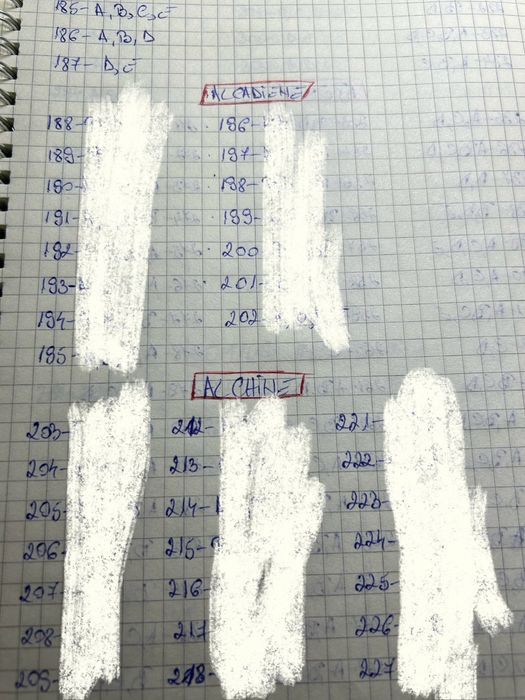 185- A, B, C, E
186- A, B, D
187- D, E
ALCADIENE
188-
189-
190-
191-
192-
193-
194-
195-
196-
197-
198-
199-
200
201-
202-
ALCHINE
203-
204-
205-
206-
207-
208-
209-
212-
213-
214-
215-
216-
217
218-
221-
222-
223-
224-
225-
226-
227